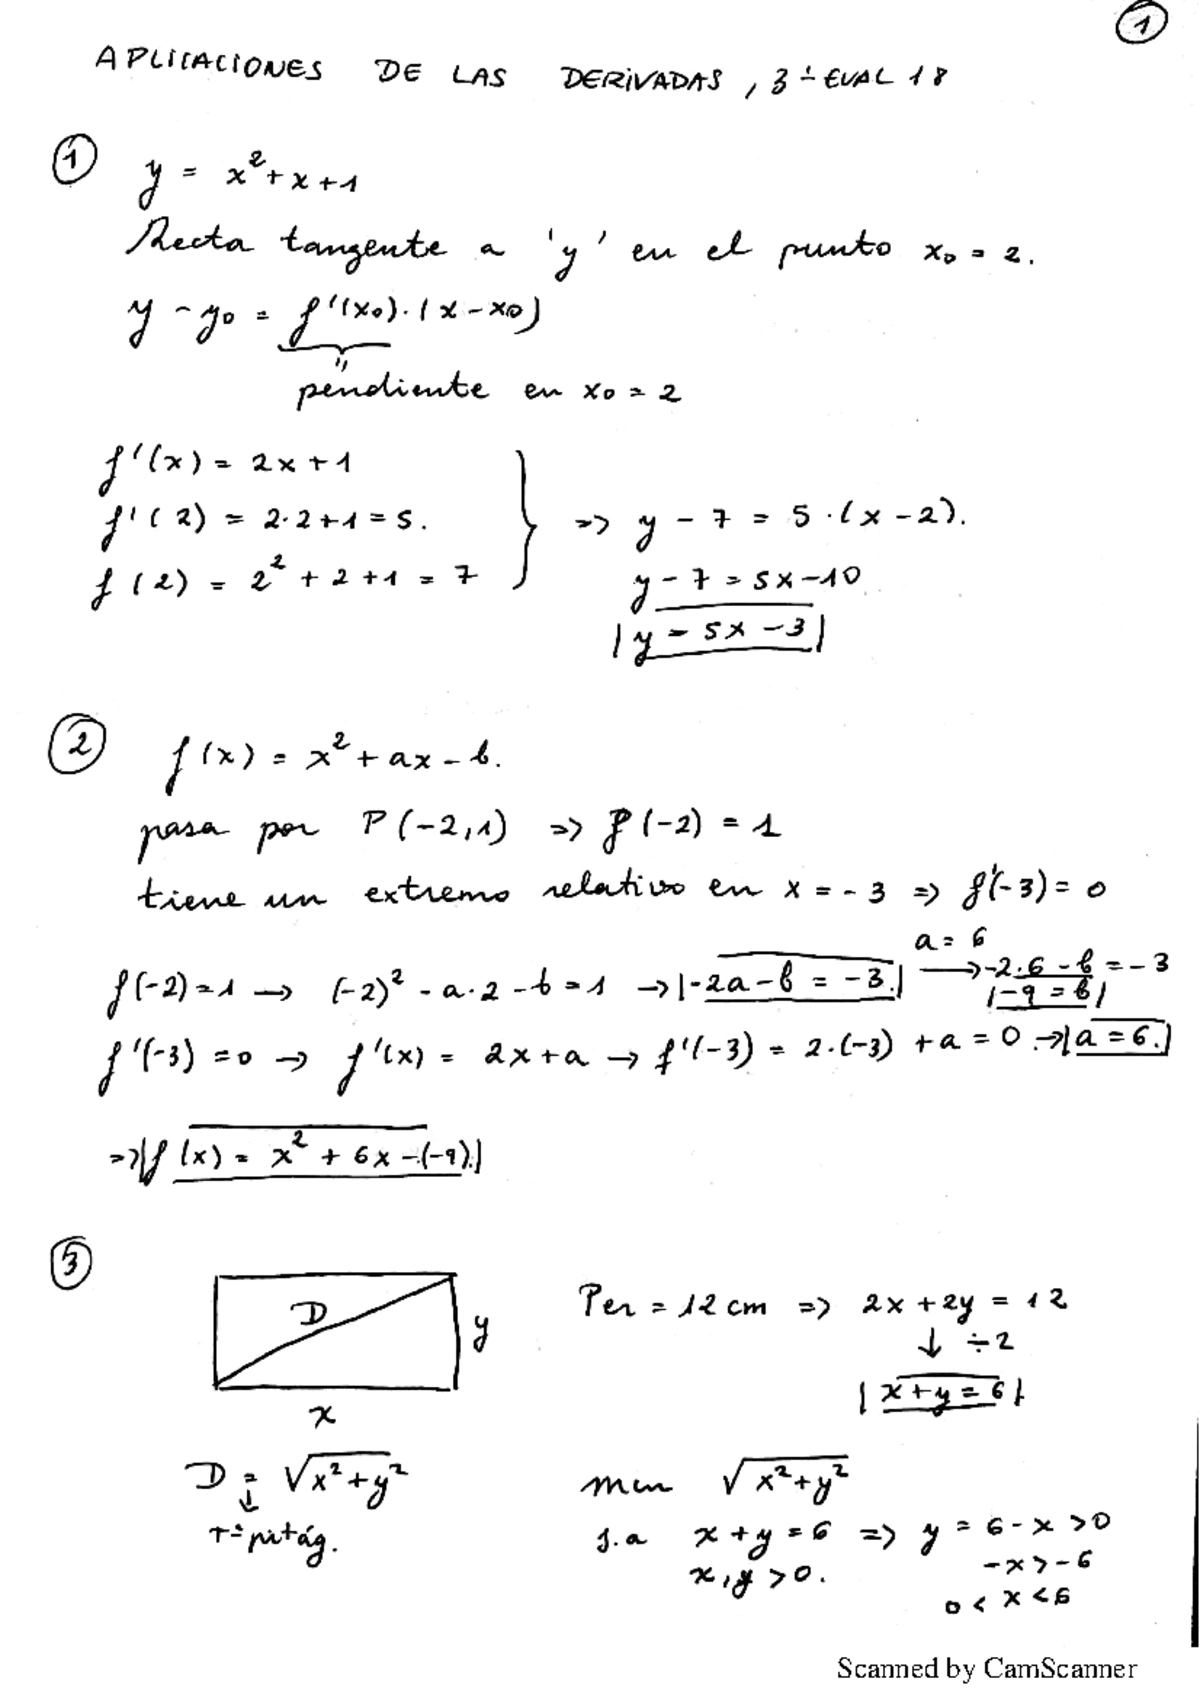 1
APLICACIONES DE LAS DERIVADAS, 3ª EVAL 18
① y = x² + x + 1
Recta tangente a 'y' en el punto x₀ = 2.
y - y₀ = f'(x₀)·(x - x₀)
"
pendiente en x₀ = 2
f'(x) = 2x + 1
f'(2) = 2·2 + 1 = 5. => y - 7 = 5·(x - 2).
f(2) = 2² + 2 + 1 = 7 y - 7 = 5x - 10
|y = 5x - 3|
② f(x) = x² + ax - b.
pasa por P(-2,1) => f(-2) = 1
tiene un extremo relativo en x = -3 => f'(-3) = 0
a = 6
f(-2) = 1 → (-2)² - a·2 - b = 1 → |-2a - b = -3.| → -2·6 - b = -3
|-9 = b|
f'(-3) = 0 → f'(x) = 2x + a → f'(-3) = 2·(-3) + a = 0 → |a = 6.|
=> |f(x) = x² + 6x - (-9).|
③ D y x
Per = 12 cm => 2x + 2y = 12
↓ ÷2
|x + y = 6|
D = √x² + y²
↓
Tª pitág.
min √x² + y²
s.a x + y = 6 => y = 6 - x > 0
x, y > 0. -x > -6
0 < x < 6
Scanned by CamScanner